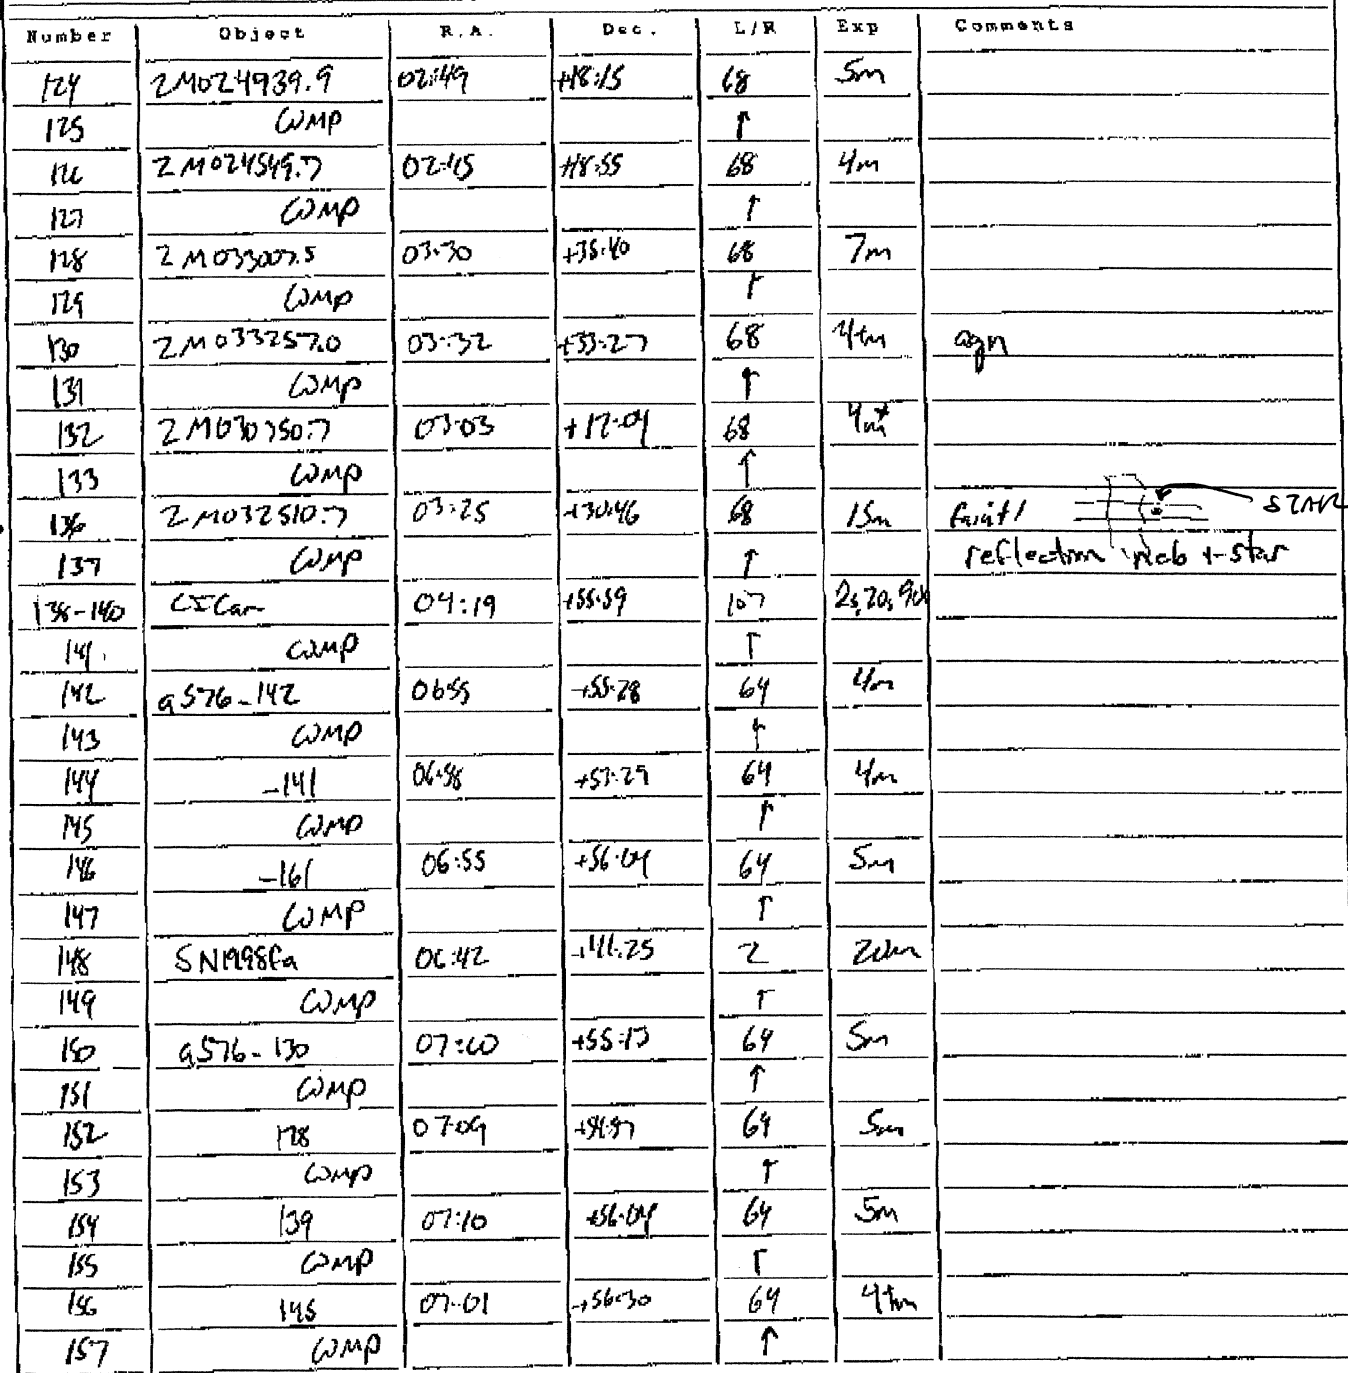 Number Object R.A. Dec. L/R Exp Comments
124 2M024939.9 02:49 +18:15 68 5m
125 COMP ↑
126 2M024549.7 02:45 +18:55 68 4m
127 COMP ↑
128 2M033007.5 03:30 +35:40 68 7m
129 COMP ↑
130 2M033257.0 03:32 +33:27 68 4m agn
131 COMP ↑
132 2M030350.7 03:03 +17:04 68 4m
133 COMP ↑
136 2M032510.7 03:25 +30:46 68 15m faint! STAR
137 COMP ↑ reflection neb + star
138-140 CICam 04:19 +55:59 107 2s, 20s, 90s
141 COMP ↑
142 a576-142 06:55 +55:28 64 4m
143 COMP ↑
144 -141 06:58 +57:29 64 4m
145 COMP ↑
146 -161 06:55 +56:04 64 5m
147 COMP ↑
148 SN1998fa 06:42 +41:25 2 20m
149 COMP ↑
150 a576-130 07:00 +55:13 64 5m
151 COMP ↑
152 128 07:09 64 5m
153 COMP ↑
154 139 07:10 +56:04 64 5m
155 COMP ↑
156 145 07:01 +56:30 64 4m
157 COMP ↑